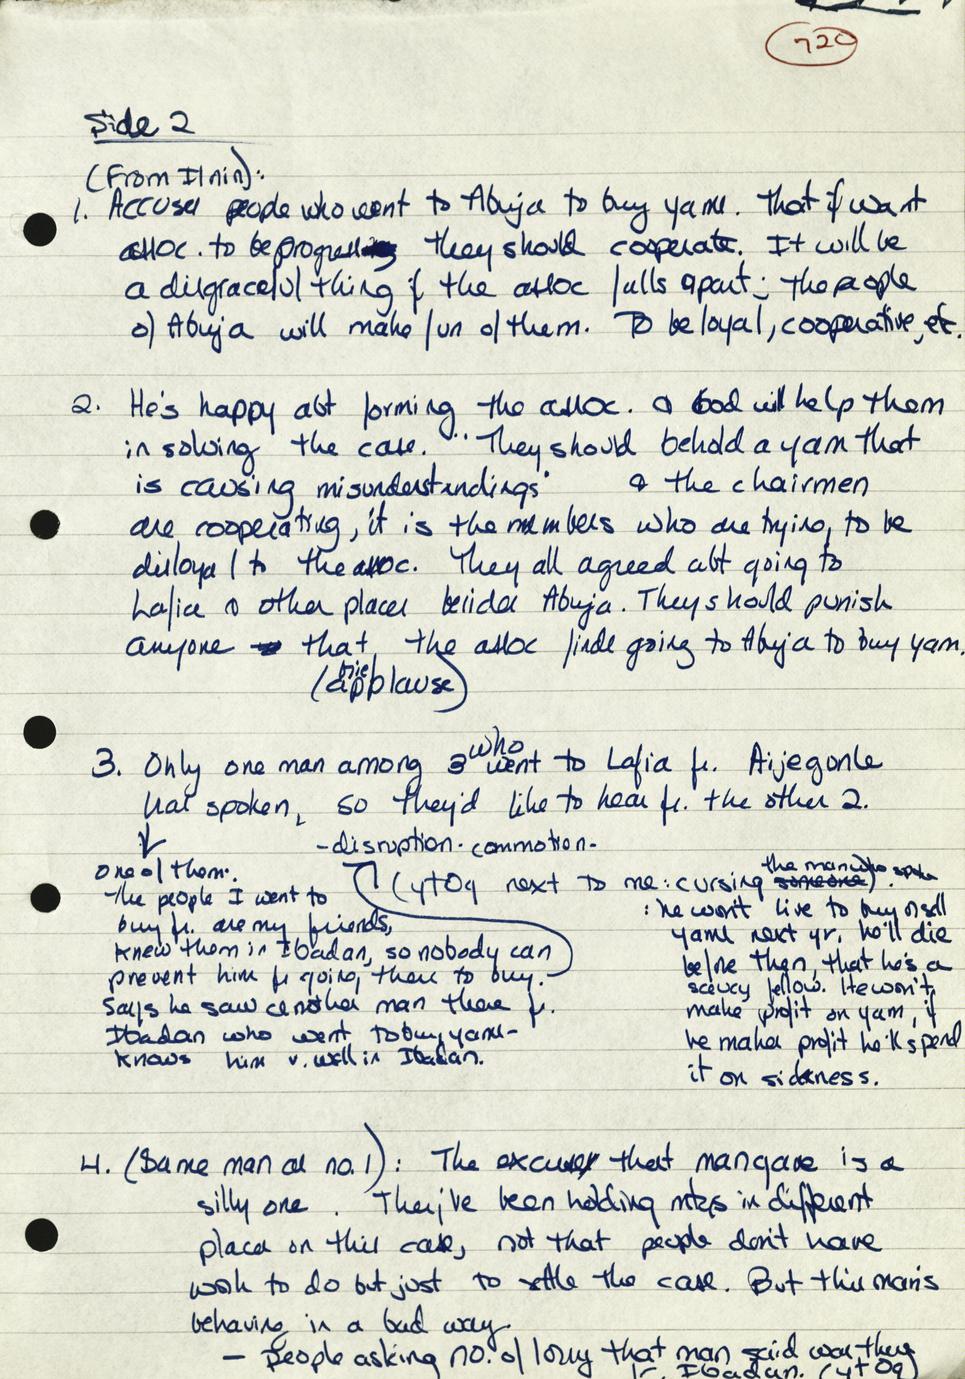 720
Side 2
(From Ilnin):
1. Accuses people who went to Abuja to buy yam. That if want
assoc. to be progress they should cooperate. It will be
a disgraceful thing if the assoc falls apart; the people
of Abuja will make fun of them. To be loyal, cooperative, etc.
2. He's happy abt forming the assoc. & God will help them
in solving the case. "They should behold a yam that
is causing misunderstandings" & the chairmen
are cooperating, it is the members who are trying to be
disloyal to the assoc. They all agreed abt going to
Lafia & other places besides Abuja. They should punish
anyone that the assoc finds going to Abuja to buy yam.
(brief applause)
3. Only one man among 3 who went to Lafia fr. Aijegonle
has spoken, so they'd like to hear fr. the other 2.
-disruption-commotion-
one of them.
-the people I went to
buy fr. are my friends,
knew them in Ibadan, so nobody can
prevent him fr going there to buy.-
says he saw another man there fr.
Ibadan who went to buy yams-
knows him v. well in Ibadan.
(y+Oq next to me: cursing someone) the man who spoke.
: he won't live to buy & sell
yams next yr, he'll die
before then, that he's a
saucy fellow. He won't
make profit on yam, if
he makes profit he'll spend
it on sickness.
4. (Same man as no. 1): The excuse that man gave is a
silly one. They've been holding mtgs in different
places on this case, not that people don't have
work to do but just to settle the case. But this man's
behaving in a bad way.
- People asking no. of lorry that man said was there
fr. Ibadan. (y+Oq)